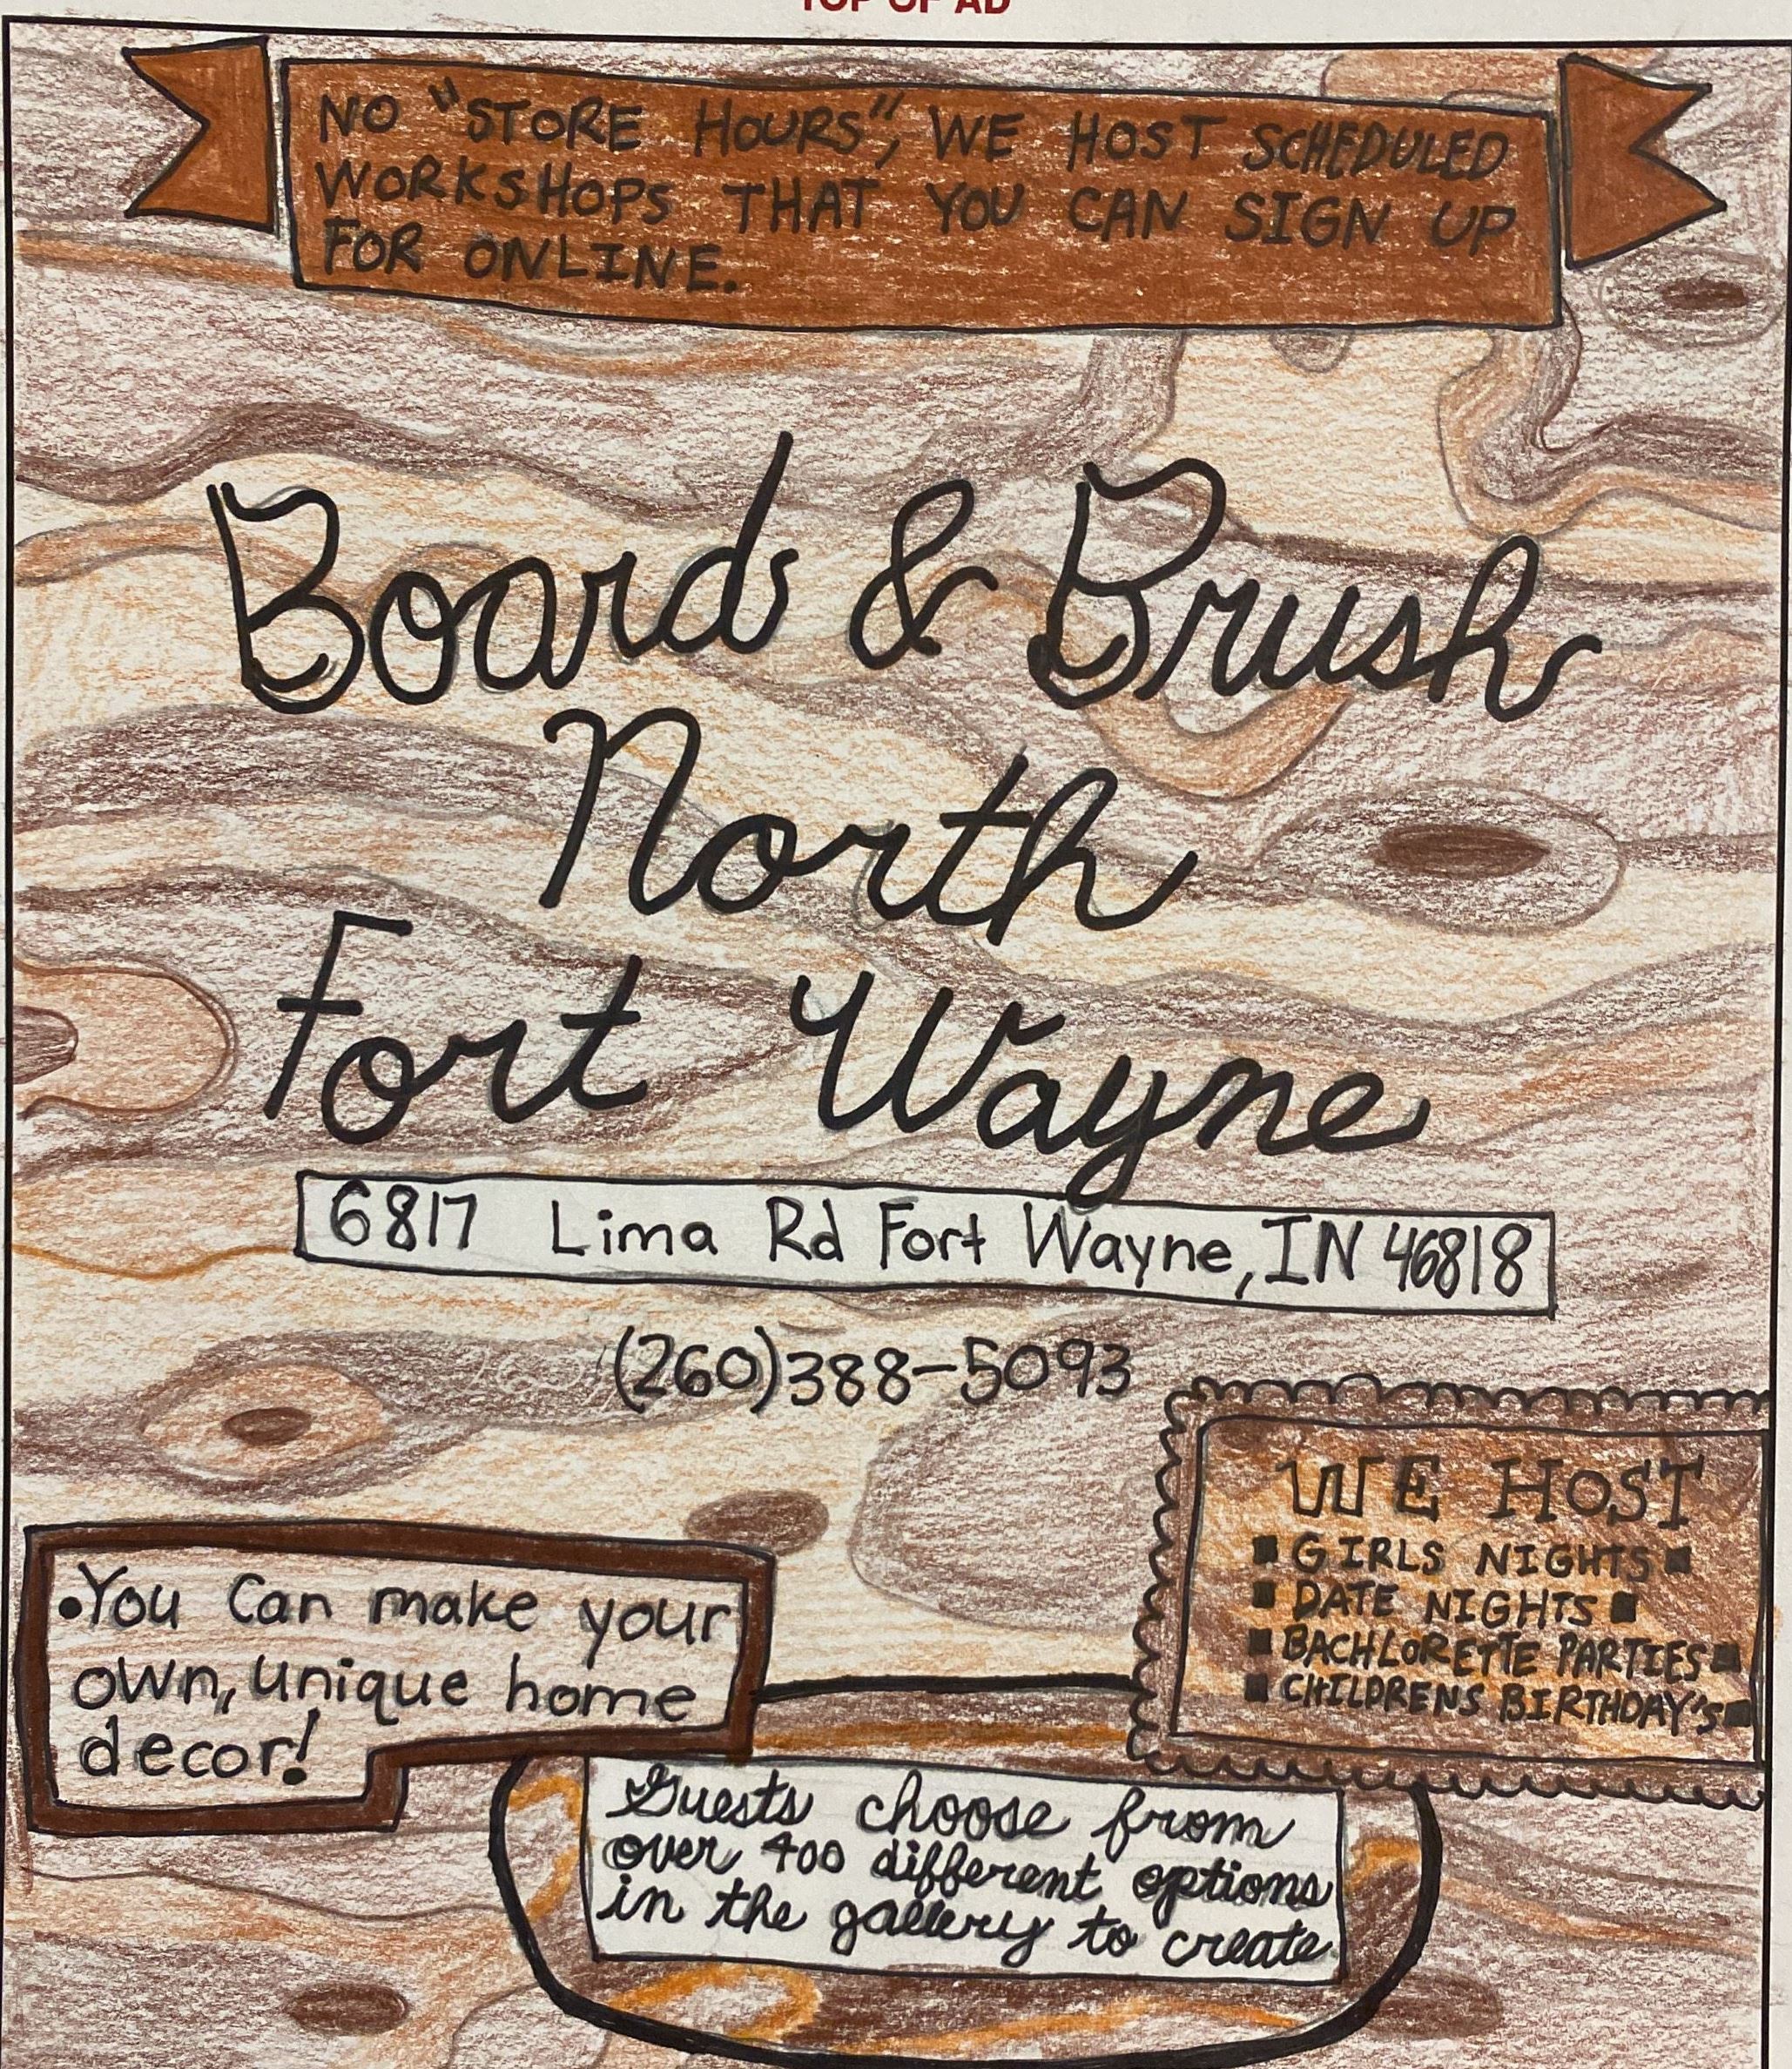 TOP OF AD
NO "STORE HOURS", WE HOST SCHEDULED
WORKSHOPS THAT YOU CAN SIGN UP
FOR ONLINE.
Board & Brush
North
Fort Wayne
6817 Lima Rd Fort Wayne, IN 46818
(260)388-5093
WE HOST
▪ GIRLS NIGHTS ▪
▪ DATE NIGHTS ▪
▪ BACHLORETTE PARTIES ▪
▪ CHILDRENS BIRTHDAY'S ▪
•You Can make your
own, unique home
decor!
Guests choose from
over 400 different options
in the gallery to create.